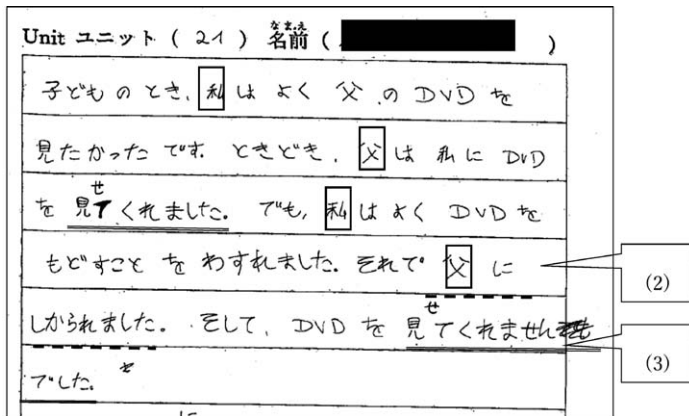 Unit ユニット ( 21 ) 名前 ( )
なまえ
子どものとき、私はよく父のDVDを
見たかったです。ときどき、父は私にDVD
せ
を見てくれました。でも、私はよくDVDを
もどすことをわすれました。それで父に
(2)
しかられました。そして、DVDを見てくれません
せ
(3)
でした。
に